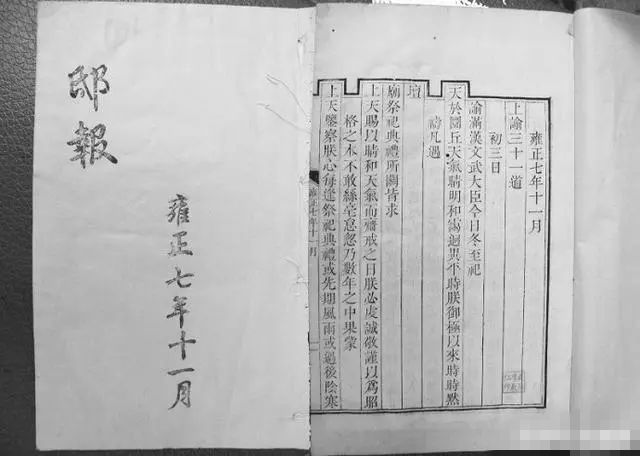 邸報
雍正七年十一月
雍正七年十一月
上諭三十一道
初三日
諭滿漢文武大臣今日冬至祀
天於圜丘天氣晴明和暢迥異平時朕御極以來時時黙
禱凡遇
壇
廟祭祀典禮所關皆求
上天賜以晴和天氣而齋戒之日朕必虔誠敬謹以爲昭
格之本不敢絲毫怠忽乃數年之中果蒙
上天鑒察朕心每逢祭祀典禮或先期風雨或過後陰寒
七年十一月